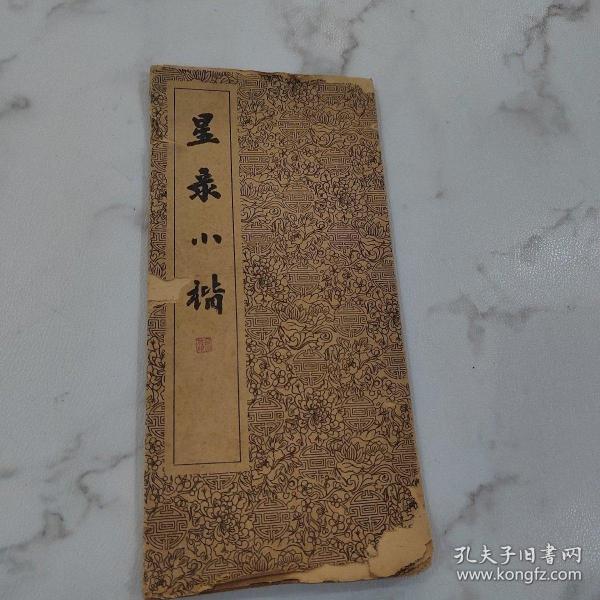 星录小楷
孔夫子旧書网
www.kongfz.com